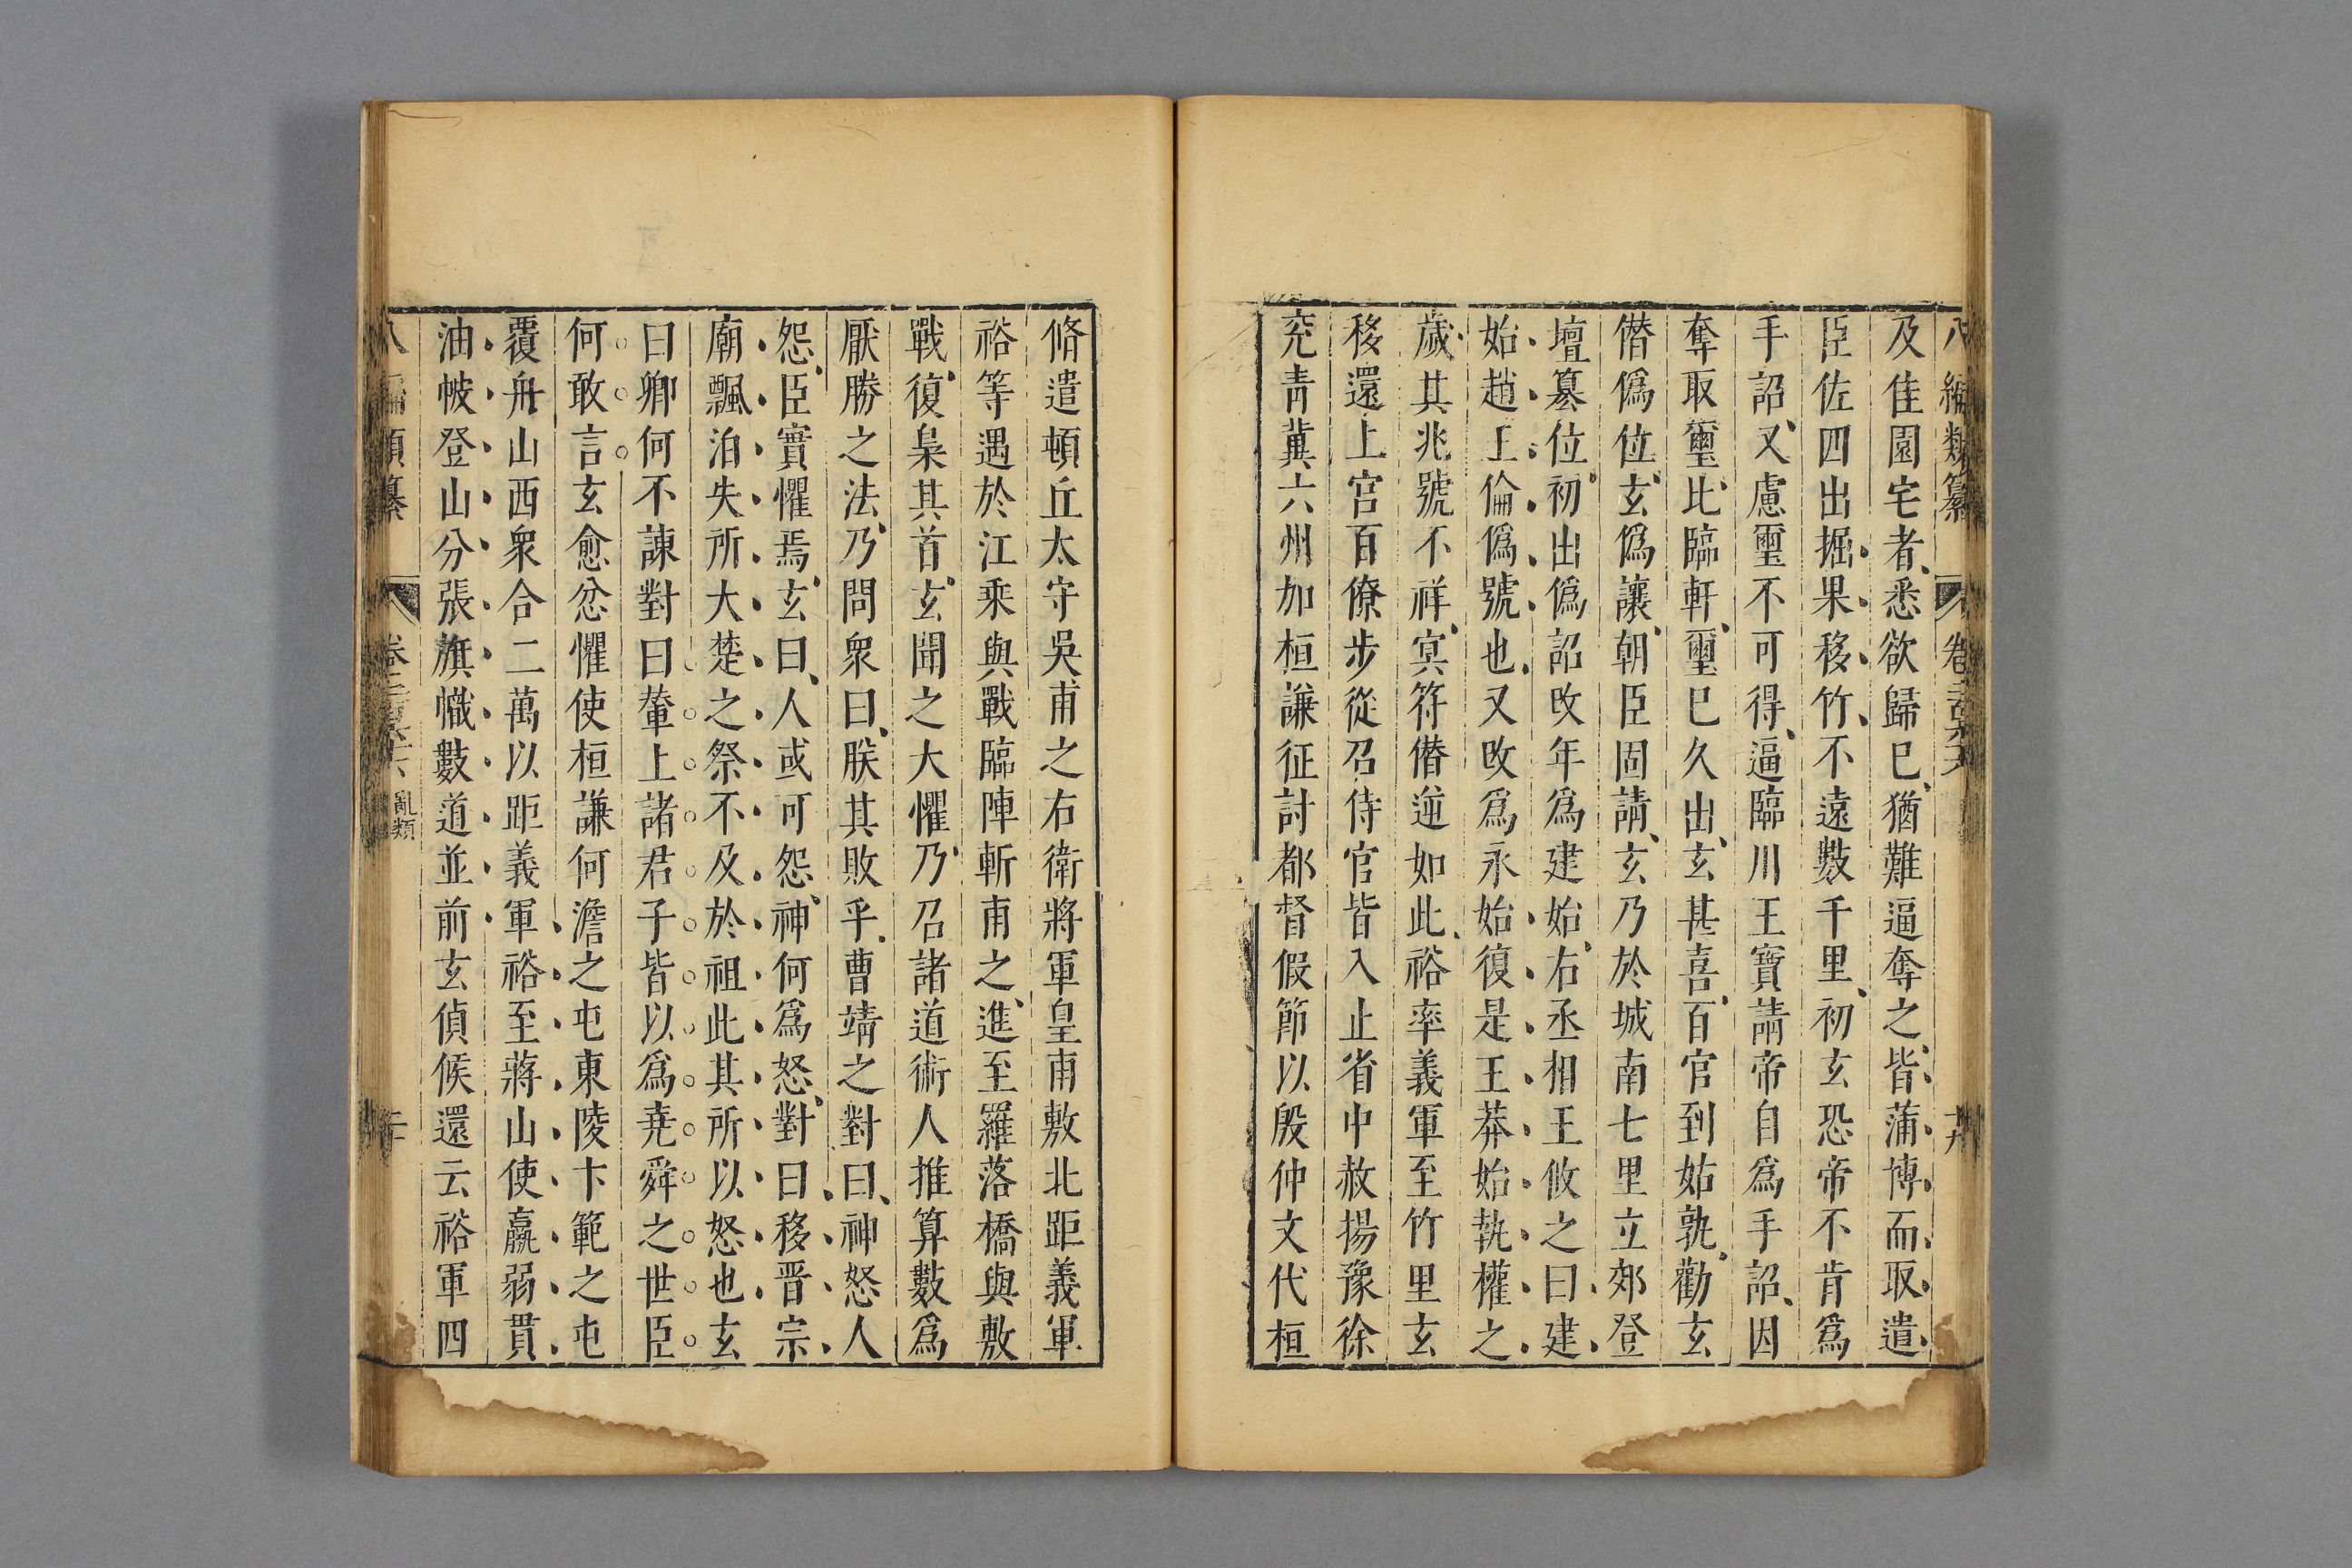 八編類纂 卷二百六十六 十九
及佳園宅者悉欲歸已猶難逼奪之皆蒲博而取遣
臣佐四出掘果移竹不遠數千里初玄恐帝不肯爲
手詔又慮璽不可得逼臨川王寶請帝自爲手詔因
奪取璽比臨軒璽巳久出玄甚喜百官到姑孰勸玄
僭僞位玄僞讓朝臣固請玄乃於城南七里立郊登
壇篡位初出僞詔改年爲建始右丞相王攸之曰建
始趙王倫僞號也又改爲永始復是王莽始執權之
歲其兆號不祥冥符僭逆如此裕率義軍至竹里玄
移還上宮百僚步從召侍官皆入止省中赦揚豫徐
兖靑冀六州加桓謙征討都督假節以殷仲文代桓
脩遣頓丘太守吳甫之右衛將軍皇甫敷北距義軍
裕等遇於江乘與戰臨陣斬甫之進至羅落橋與敷
戰復梟其首玄聞之大懼乃召諸道術人推算數爲
厭勝之法乃問衆曰朕其敗乎曹靖之對曰神怒人
怨臣實懼焉玄曰人或可怨神何爲怒對曰移晋宗
廟飄泊失所大楚之祭不及於祖此其所以怒也玄
曰卿何不諫對曰輦上諸君子皆以爲堯舜之世臣
何敢言玄愈忿懼使桓謙何澹之屯東陵卞範之屯
覆舟山西衆合二萬以距義軍裕至蔣山使羸弱貫
油帔登山分張旗幟數道並前玄偵候還云裕軍四
八編類纂 亂類 二十